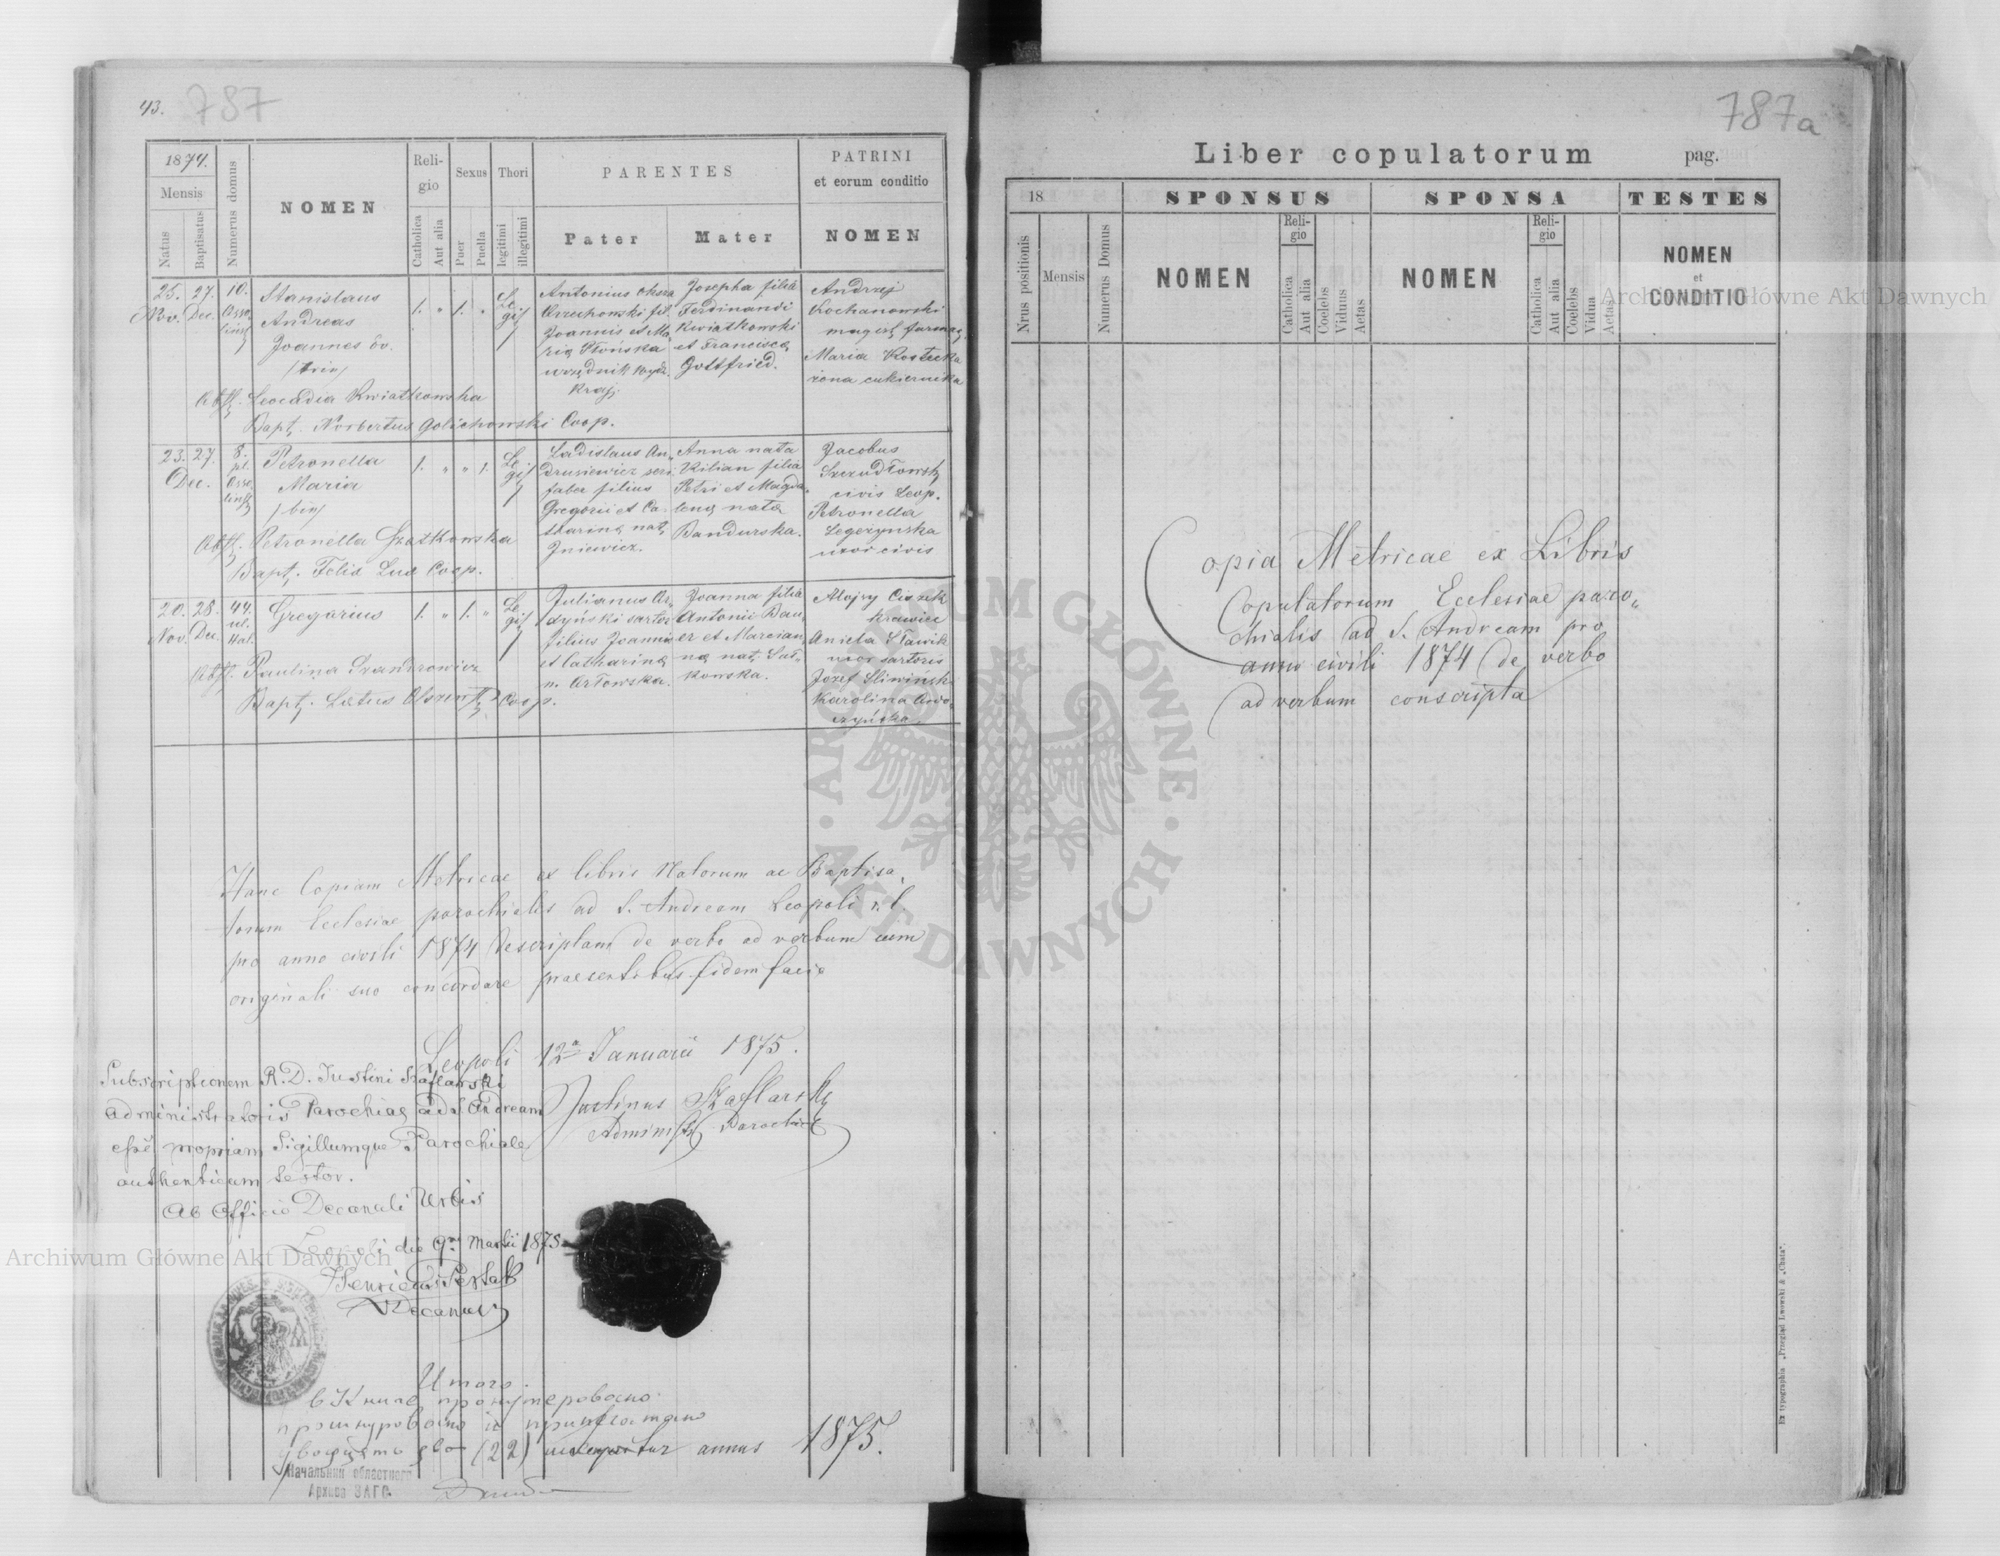 43. 787
1874.
Mensis
Natus
Baptisatus
Numerus domus
NOMEN
Reli-
gio
Catholica
Aut alia
Sexus
Puer
Puella
Thori
legitimi
illegitimi
PARENTES
Pater
Mater
PATRINI
et eorum conditio
NOMEN
25. 27. 10.
Nov. Dec.
Stanislaus
Andreas
Joannes Ev.
/trin/
1. " 1. "
Le
gi/
Antonius
Krzechowski fil.
Joannis et Ma
ria Słońska
urzędnik wydz.
kraj.
Josepha filia
Ferdinandi
Kwiatkowski
et Francisca
Gottfried.
Andrzej
Kochanowski
magr. farmac.
Maria Kostecka
żona cukiernika
Obst. Leocadia Kwiatkowska
Bapt. Norbertus Golichowski Coop.
23. 27. 8.
Dec. pl.
Osso
lińs
Petronella
Maria
/bin/
1. " " 1.
Le
gi/
Ladislaus An„
drusiewicz seri
faber filius
Gregorii et Ca-
tharina nat.
Iniewicz.
Anna nata
Kilian filia
Petri et Magda„
lena nata
Bandurska.
Jacobus
Szczudłowski
civis Leop.
Petronella
Legeżynska
uxor civis
Obst. Petronella Szatkowska
Bapt. Felix Lux Coop.
20. 28. 44.
Nov. Dec. ul.
Hal.
Gregorius
1. " 1. "
Le
gi/
Julianus Ar„
dzyński sartor
filius Joannis
et Catharina
n. Orłowska.
Joanna filia
Antonii Bau„
er et Marcian
na nat.
kowska.
Alojzy Ciszek
krawiec
Aniela Sławik
uxor sartoris
Jozef Sliwińsk
Karolina
Obst. Paulina Szandrowicz
Bapt. Letus Coop.
Hanc Copiam Metricae ex libris Natorum ac Baptisa„
torum Ecclesiae parochialis ad S. Andream Leopoli r. l.
pro anno civili 1874 descriptam de verbo ad verbum cum
originali suo concordare praesentibus fidem facio
Leopoli 12a Januarii 1875.
Justinus Szaflarski
Administr. Parochiae
Subscriptionem R.D. Justini Szaflarski
administratoris Parochiae ad S. Andream
esse propriam Sigillumque Parochiale
authenticum testor.
Ab Officio Decanali Urbis
Leopoli die 9na Martii 1875
Henricus
Decanus
Итого
в книге пронумеровано
прошнуровано и припечатано
(22)
sequitur annus 1875.
Начальник областного
Архива ЗАГС
787a
Liber copulatorum pag.
18
Nrus positionis
Mensis
Numerus Domus
SPONSUS
NOMEN
Reli-
gio
Catholica
Aut alia
Coelebs
Viduus
Aetas
SPONSA
NOMEN
Reli-
gio
Catholica
Aut alia
Coelebs
Vidua
Aetas
TESTES
NOMEN
et
CONDITIO
Copia Metricae ex Libris
Copulatorum Ecclesiae paro„
chialis ad S. Andream pro
anno civili 1874 de verbo
ad verbum conscripta
Ex typographia „Przegląd Lwowski & „Chata".
Archiwum Główne Akt Dawnych
Archiwum Główne Akt Dawnych
ARCHIWUM GŁÓWNE · AKT DAWNYCH ·